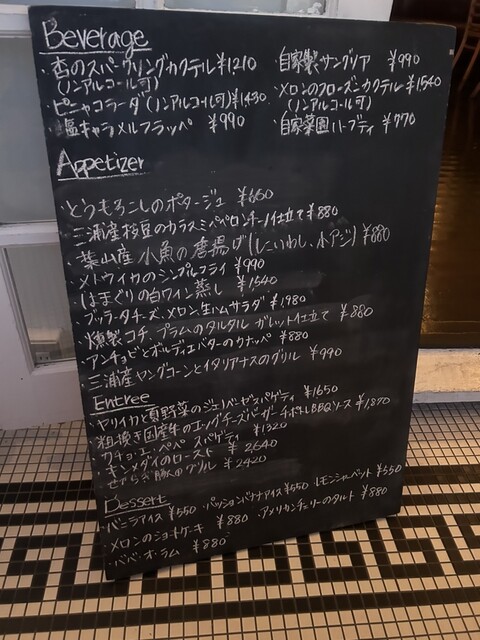 Beverage
・杏のスパークリングカクテル ¥1,210
(ノンアルコール可)
・ピニャコラーダ(ノンアルコール可) ¥1430
・塩キャラメルフラッペ ¥990
・自家製サングリア ¥990
・メロンのフローズンカクテル ¥1,540
(ノンアルコール可)
・自家菜園ハーブティ ¥770
Appetizer
・とうもろこしのポタージュ ¥660
・三浦産枝豆のカラスミペペロンチーノ仕立て ¥880
・葉山産 小魚の唐揚げ(しこいわし、小アジ) ¥880
・メトウイカのシンプルフライ ¥990
・はまぐりの白ワイン蒸し ¥1,540
・ブッラータチーズ、メロン、生ハムサラダ ¥1,980
・燻製コチ、プラムのタルタル ガレット仕立て ¥880
・アンチョビとボルディエバターのカナッペ ¥880
・三浦産ヤングコーンとイタリアナスのグリル ¥990
Entree
・ヤリイカと夏野菜のジェノベーゼスパゲティ ¥1650
・粗挽き国産牛のエッグチーズバーガー チポトルBBQソース ¥1,870
・カチョ・エ・ペペ スパゲティ ¥1320
・キンメダイのロースト ¥2,640
・やまと豚のグリル ¥2420
Dessert
・バニラアイス ¥550 ・パッションバナナアイス ¥550 ・レモンシャーベット ¥550
・メロンのショートケーキ ¥880 ・アメリカンチェリーのタルト ¥880
・ババ・オ・ラム ¥880